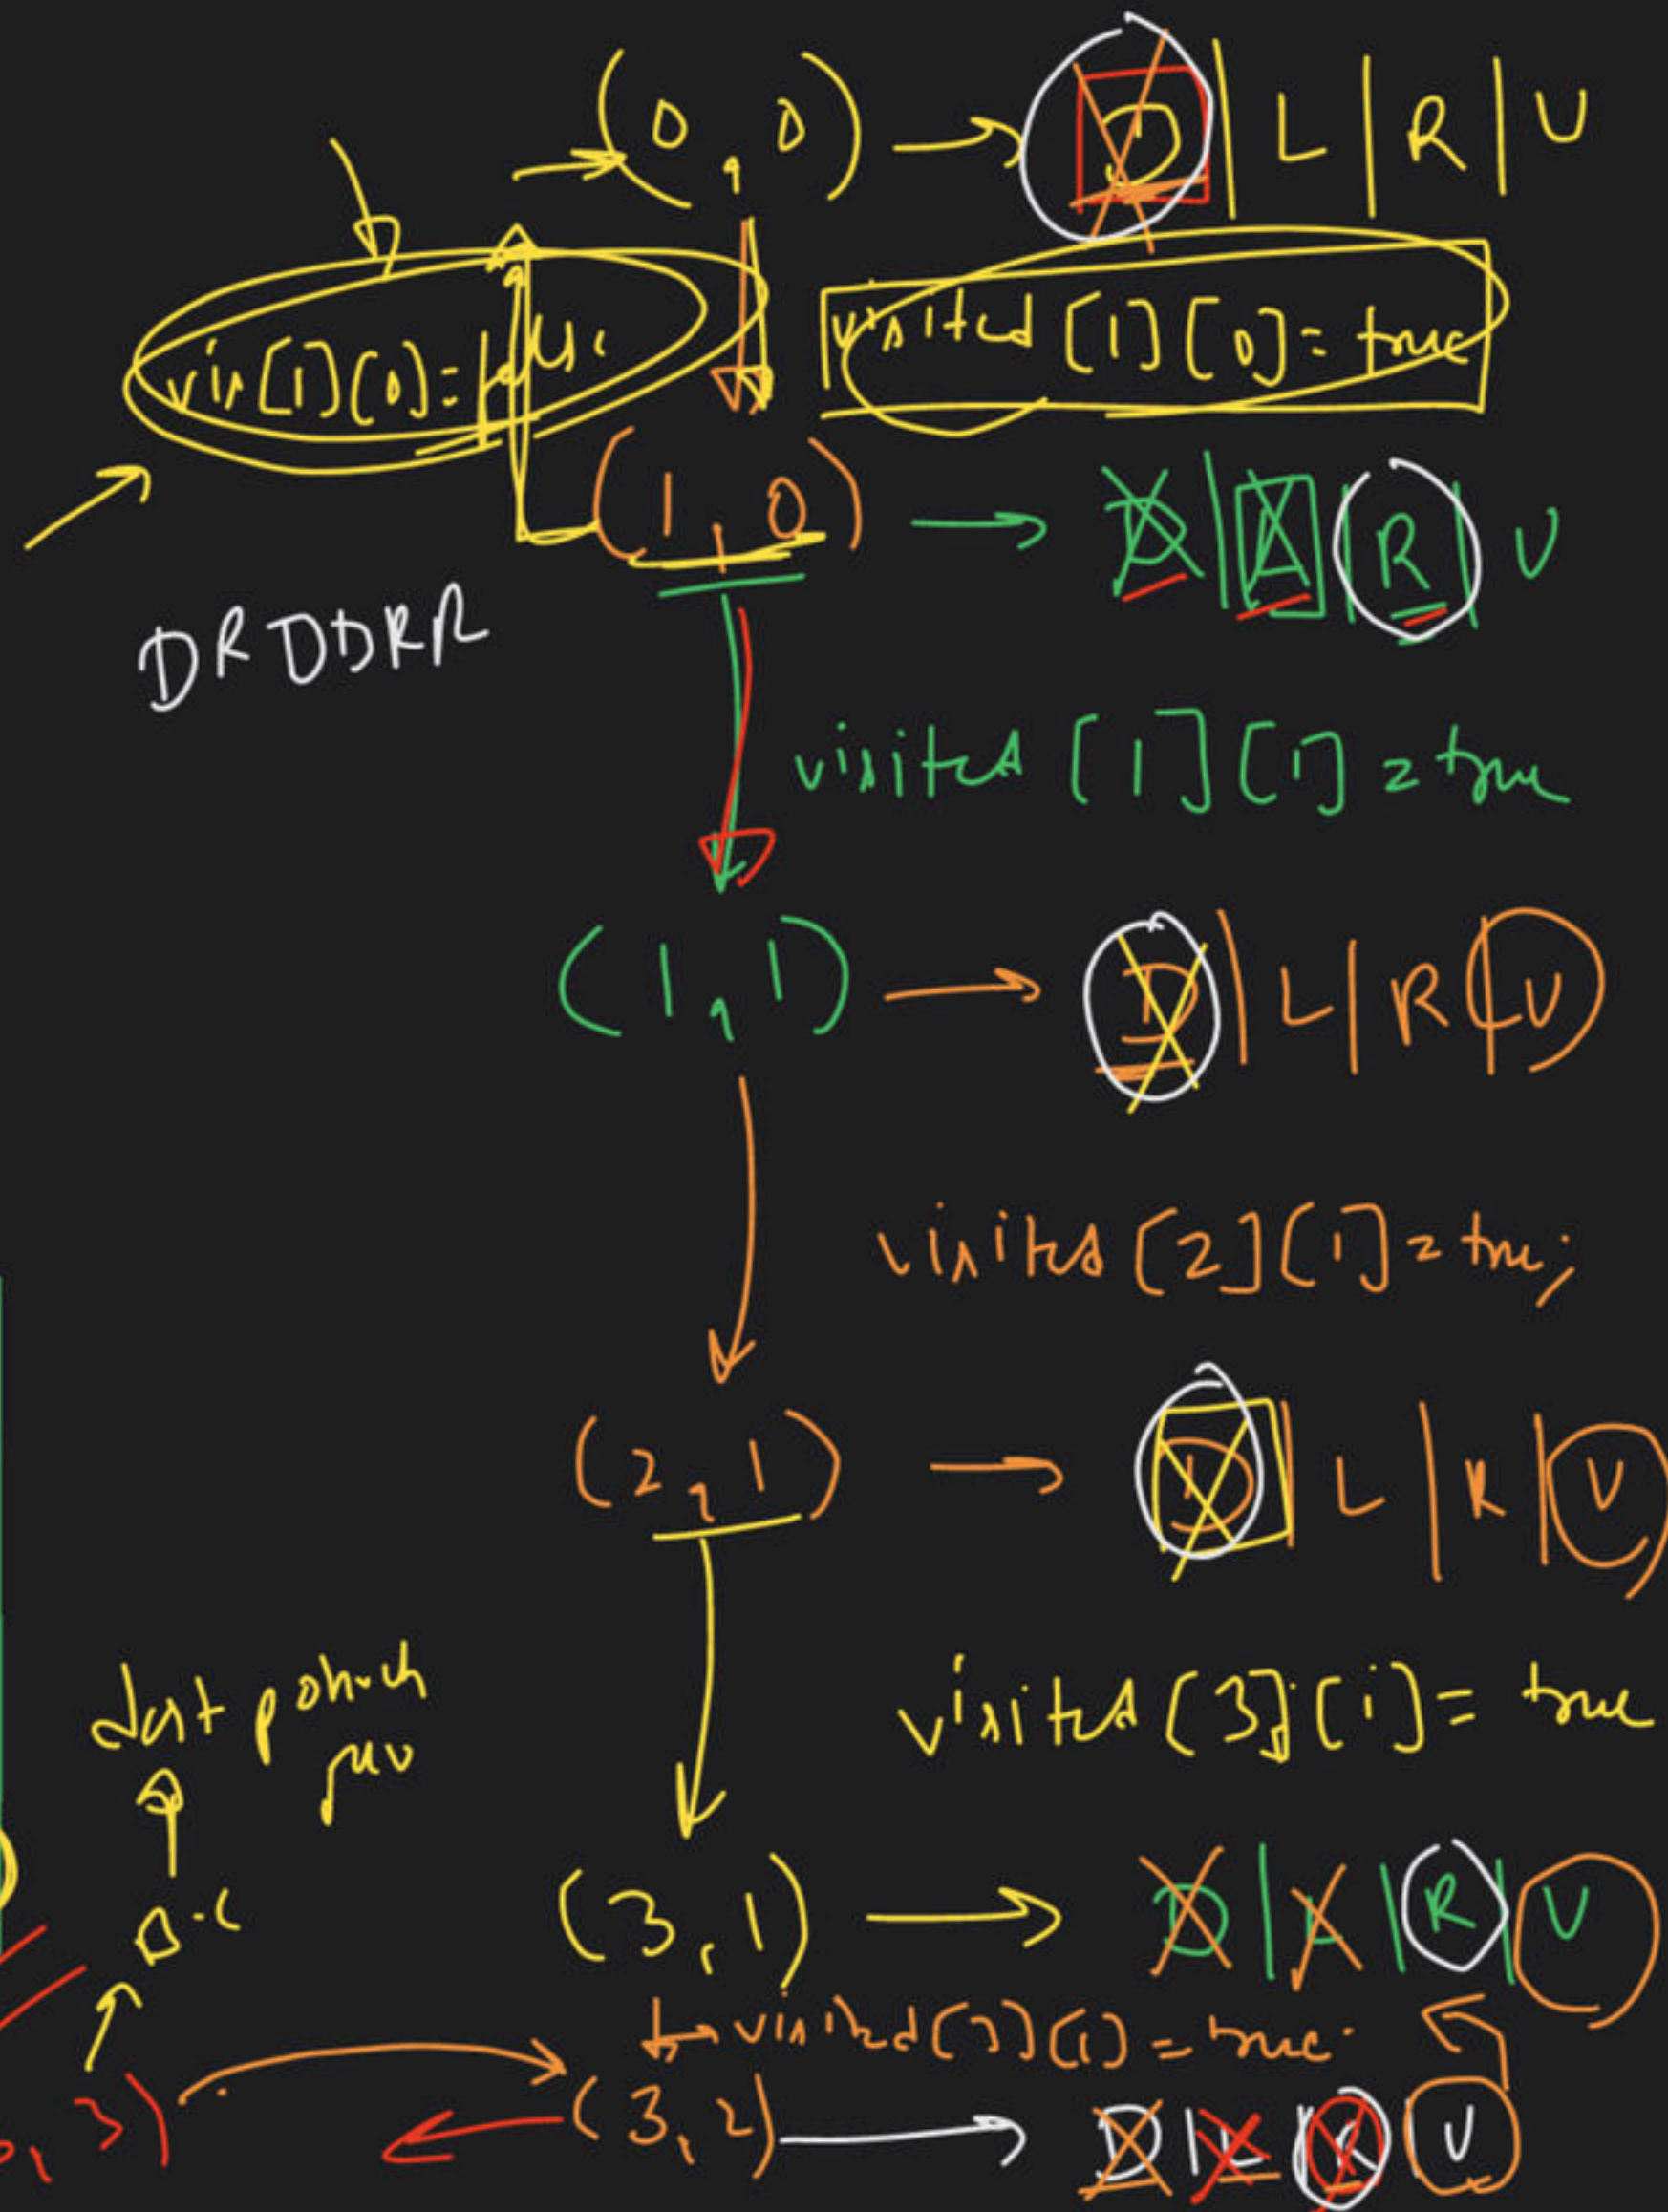 (0,0) → D | L | R | U
vis[1][0]=
visited[1][0]=true
(1,0) → D | L | R | U
DRDDRR
visited[1][1]=true
(1,1) → D | L | R | U
visited[2][1]=true;
(2,1) → D | L | R | U
visited[3][1]=true
(3,1) → D | L | R | U
B.C
=true
(3,2) → D | L | R | U
3)